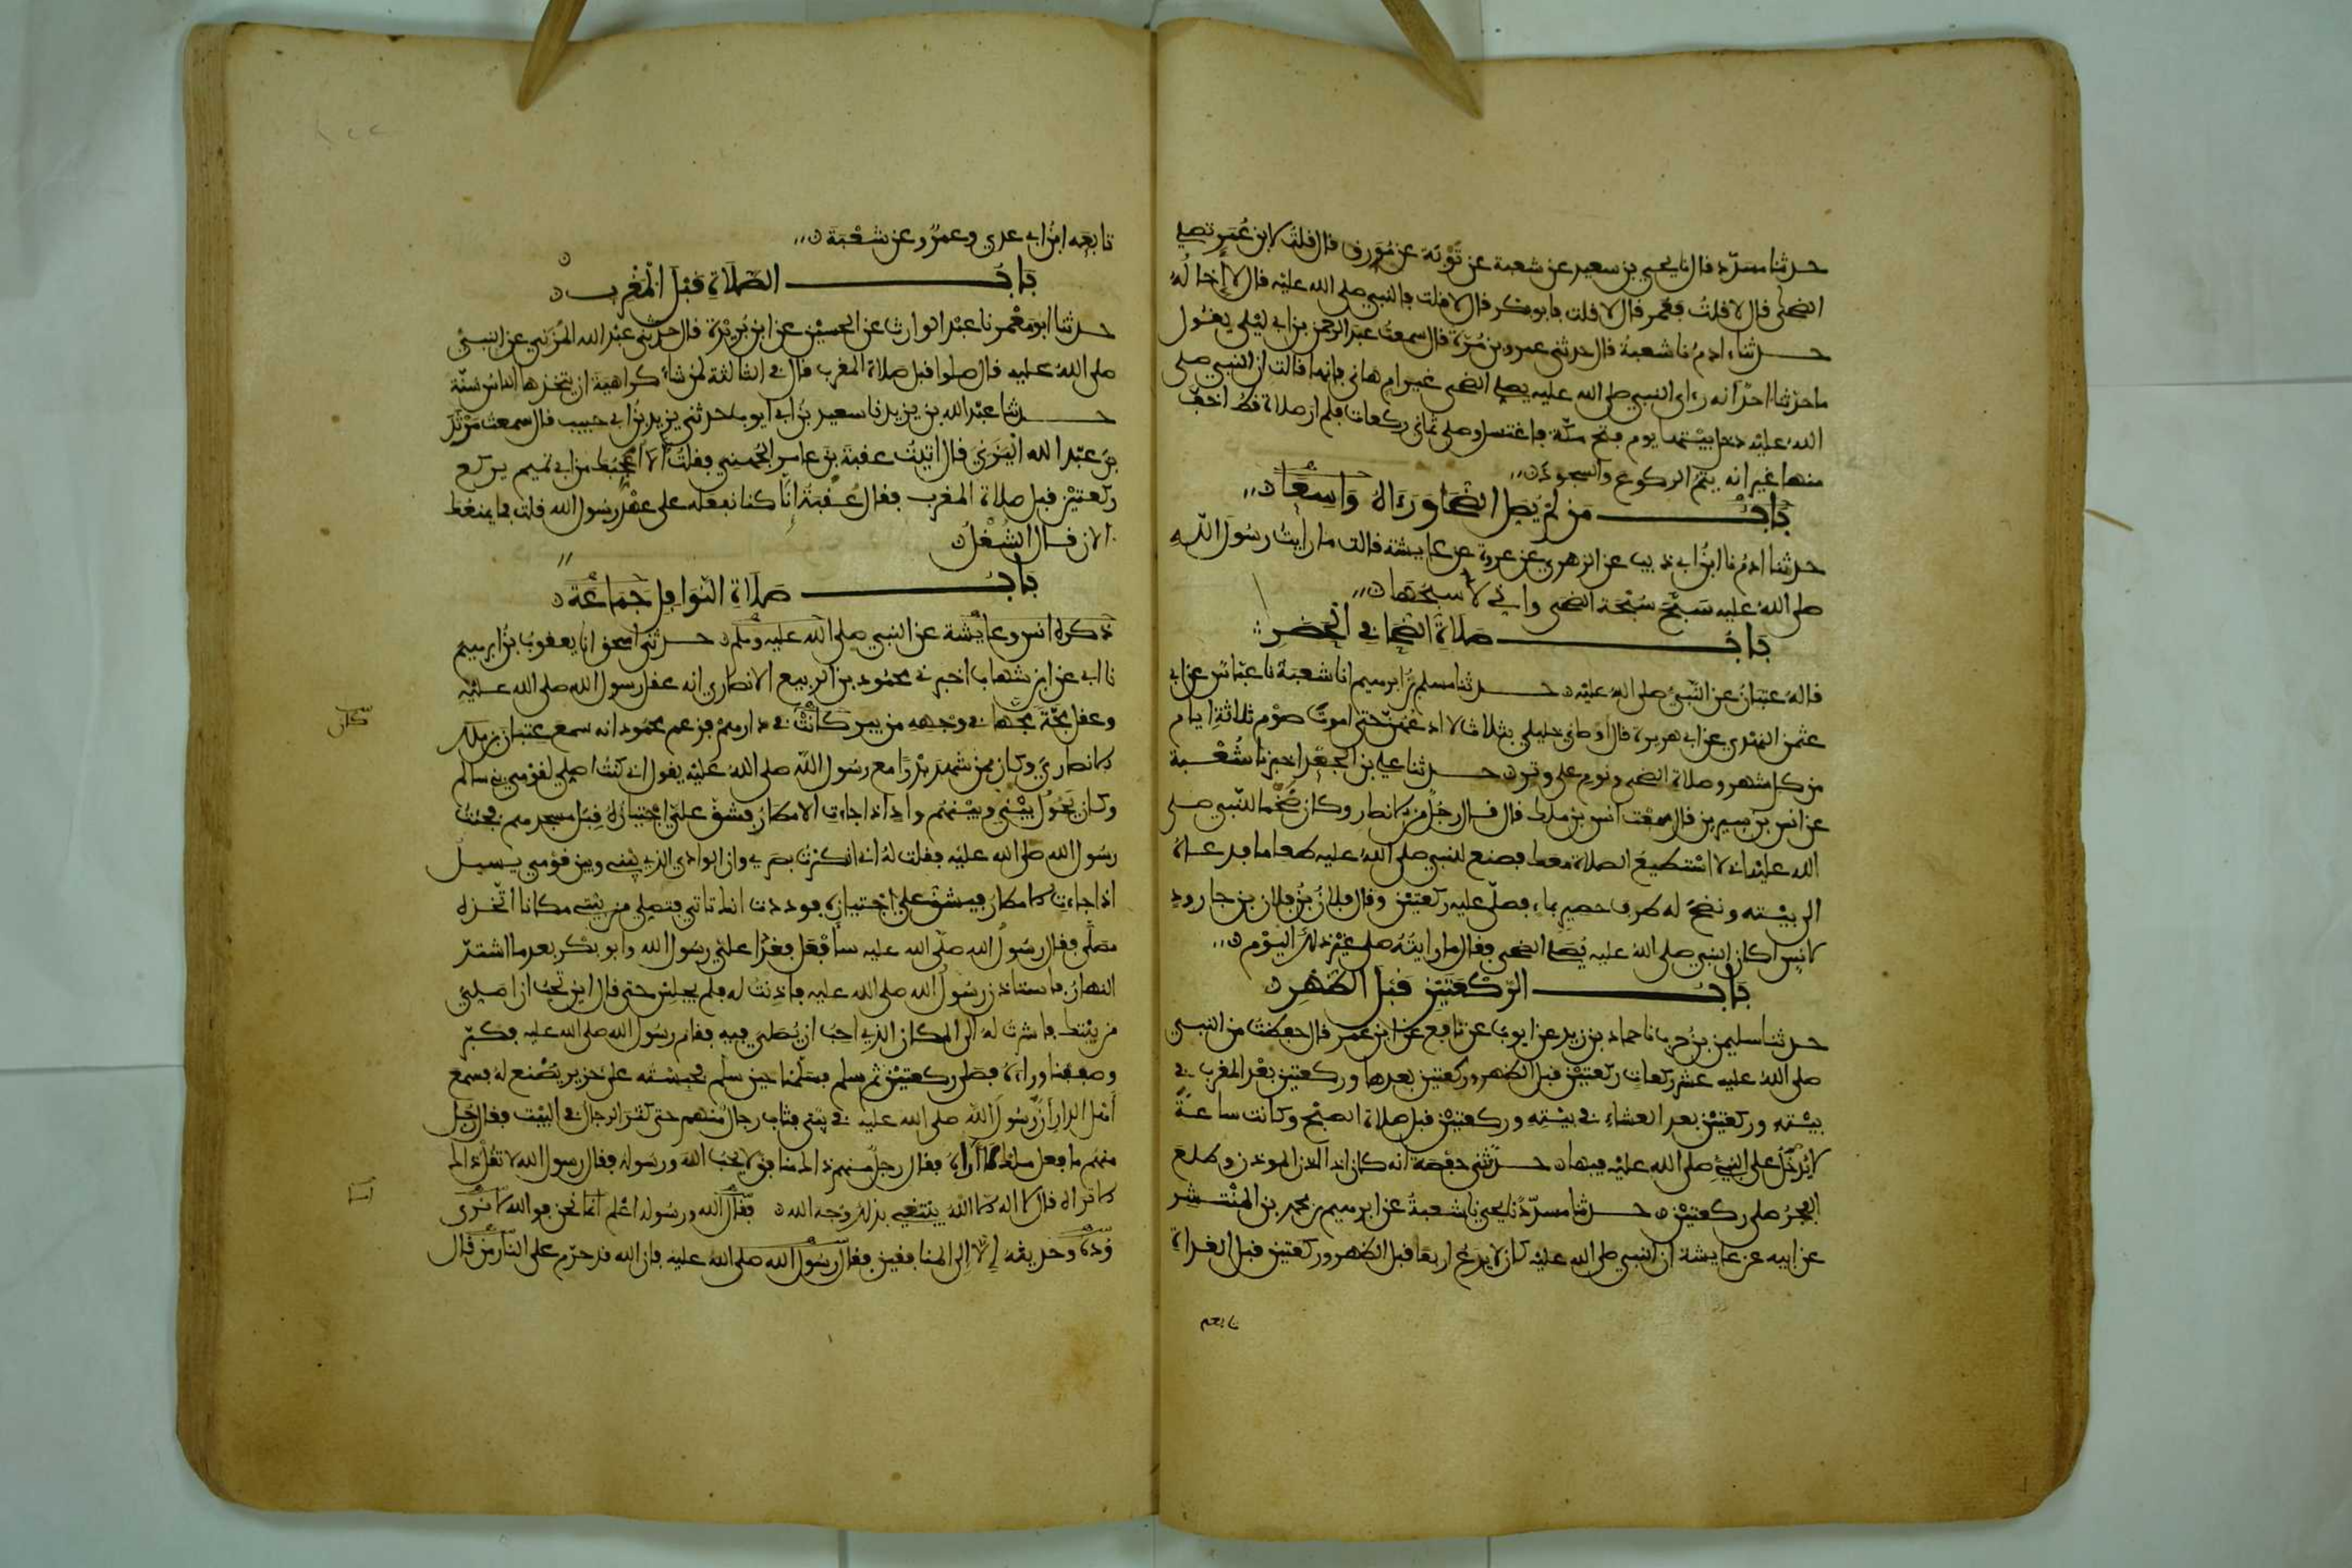 حدثنا مسدد قال نا يحيى بن سعيد عن شعبة عن توبة عن مورق قال قلت لابن عمر تصلي
الضحى قال لا قلت فعمر قال لا قلت فابو بكر قال لا قلت فالنبي صلى الله عليه قال لا إخاله
حدثنا ادم نا شعبة قال حدثني عمرو بن مرة قال سمعت عبد الرحمن بن ابي ليلى يقول
ما حدثنا احد انه راى النبي صلى الله عليه يصلي الضحى غير ام هانئ فانها قالت ان النبي صلى
الله عليه دخل بيتها يوم فتح مكة فاغتسل وصلى ثماني ركعات فلم ار صلاة قط اخف
منها غير انه يتم الركوع والسجود
باب من لم يصل الضحا ورءاه واسعا
حدثنا ادم نا ابن ابي ذيب عن الزهري عن عروة عن عايشة قالت ما رايت رسول الله
صلى الله عليه سبح سبحة الضحى واني لاسبحها
باب صلاة الضحا في الحضر
قاله عتبان عن النبي صلى الله عليه حدثنا مسلم بن ابرهيم انا شعبة نا عباس عن ابي
عثمن النهدي عن ابي هريرة قال اوصاني خليلي بثلاث لا ادعهن حتى اموت صوم ثلاثة ايام
من كل شهر وصلاة الضحى ونوم على وتر حدثنا علي بن الجعد اخبرنا شعبة
عن انس بن سيرين قال سمعت انس بن ملك قال قال رجل من الانصار وكان ضخما للنبي صلى
الله عليه اني لا استطيع الصلاة معك فصنع للنبي صلى الله عليه طعاما فدعاه
الى بيته ونضح له طرف حصير بماء فصلى عليه ركعتين وقال فلان بن فلان بن جارود
لانس اكان النبي صلى الله عليه يصلي الضحى فقال ما رايته صلى غير ذلك اليوم
باب الركعتين قبل الظهر
حدثنا سليمن بن حرب نا حماد بن زيد عن ايوب عن نافع عن ابن عمر قال حفظت من النبي
صلى الله عليه عشر ركعات ركعتين قبل الظهر وركعتين بعدها وركعتين بعد المغرب في
بيته وركعتين بعد العشاء في بيته وركعتين قبل صلاة الصبح وكانت ساعة
لا يدخل على النبي صلى الله عليه فيها حدثتني حفصة انه كان اذا اذن الموذن وطلع
الفجر صلى ركعتين حدثنا مسدد نا يحيى نا شعبة عن ابرهيم بن محمد بن المنتشر
عن ابيه عن عايشة ان النبي صلى الله عليه كان لا يدع اربعا قبل الظهر وركعتين قبل الغداة
تابعه
تابعه ابن ابي عدي وعمرو عن شعبة
باب الصلاة قبل المغرب
حدثنا ابو معمر نا عبد الوارث عن الحسين عن ابن بريدة قال حدثني عبد الله المزني عن النبي
صلى الله عليه قال صلوا قبل صلاة المغرب قال في الثالثة لمن شاء كراهية ان يتخذها الناس سنة
حدثنا عبد الله بن يزيد نا سعيد بن ابي ايوب حدثني يزيد بن ابي حبيب قال سمعت مرثد
بن عبد الله اليزني قال اتيت عقبة بن عامر الجهني فقلت الا اعجبك من ابي تميم يركع
ركعتين قبل صلاة المغرب فقال عقبة انا كنا نفعله على عهد رسول الله قلت فما يمنعك
الان قال الشغل
باب صلاة النوافل جماعة
ذكره انس وعايشة عن النبي صلى الله عليه وسلم حدثني اسحق انا يعقوب بن ابرهيم
نا ابي عن ابن شهاب اخبرني محمود بن الربيع الانصاري انه عقل رسول الله صلى الله عليه
وعقل مجة مجها في وجهه من بير كانت في دارهم فزعم محمود انه سمع عتبان بن ملك
كان
الانصاري وكان ممن شهد بدرا مع رسول الله صلى الله عليه يقول اني كنت اصلي لقومي بني سالم
وكان يحول بيني وبينهم واد اذا جاءت الامطار فشق علي اجتيازه قبل مسجدهم فجئت
رسول الله صلى الله عليه فقلت له اني انكرت بصري وان الوادي الذي بيني وبين قومي يسيل
اذا جاءت الامطار فيشق علي اجتيازه فوددت انك تاتي فتصلي من بيتي مكانا اتخذه
مصلى فقال رسول الله صلى الله عليه سافعل فغدا علي رسول الله وابو بكر بعد ما اشتد
النهار فاستاذن رسول الله صلى الله عليه فاذنت له فلم يجلس حتى قال اين تحب ان اصلي
من بيتك فاشرت له الى المكان الذي احب ان يصلي فيه فقام رسول الله صلى الله عليه فكبر
وصففنا وراءه فصلى ركعتين ثم سلم فسلمنا حين سلم فحبسته على خزير يصنع له فسمع
اهل الدار ان رسول الله صلى الله عليه في بيتي فثاب رجال منهم حتى كثر الرجال في البيت فقال رجل
منهم ما فعل ملك لا اراه فقال رجل منهم ذاك منافق لا يحب الله ورسوله فقال رسول الله لا تقل ذاك
الا تراه قال لا اله الا الله يبتغي بذلك وجه الله فقال الله ورسوله اعلم انما نحن فوالله لا نرى
وده وحديثه إلا إلى المنافقين فقال رسول الله صلى الله عليه فان الله قد حرم على النار من قال